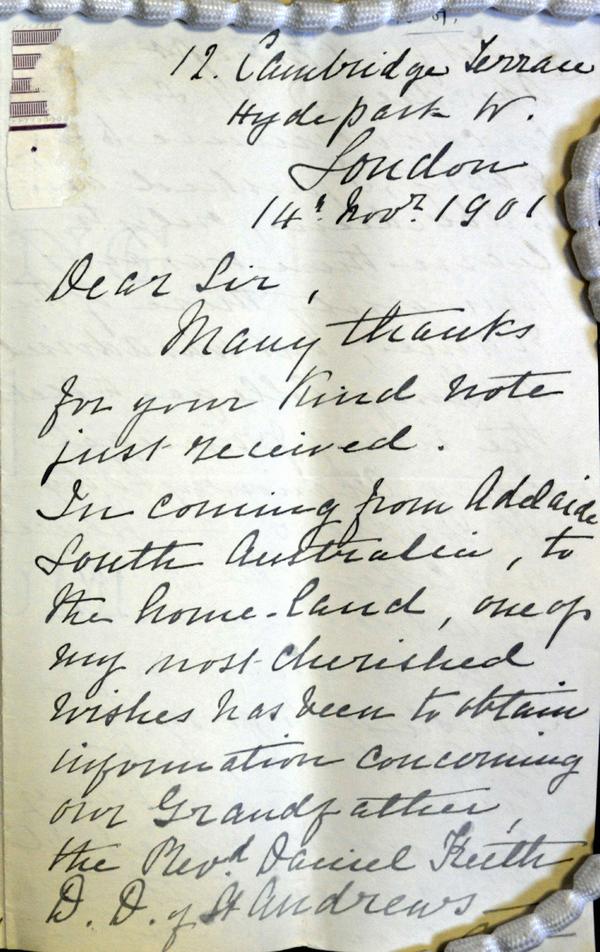 12. Cambridge Terrace
Hyde park W.
London
14th Novr 1901
Dear Sir,
Many thanks
for your kind note
just received.
In coming from Adelaide
South Australia, to
the home-land, one of
my most cherished
wishes has been to obtain
information concerning
our Grandfather,
the Revd. Daniel Keith
D. D. of St Andrews